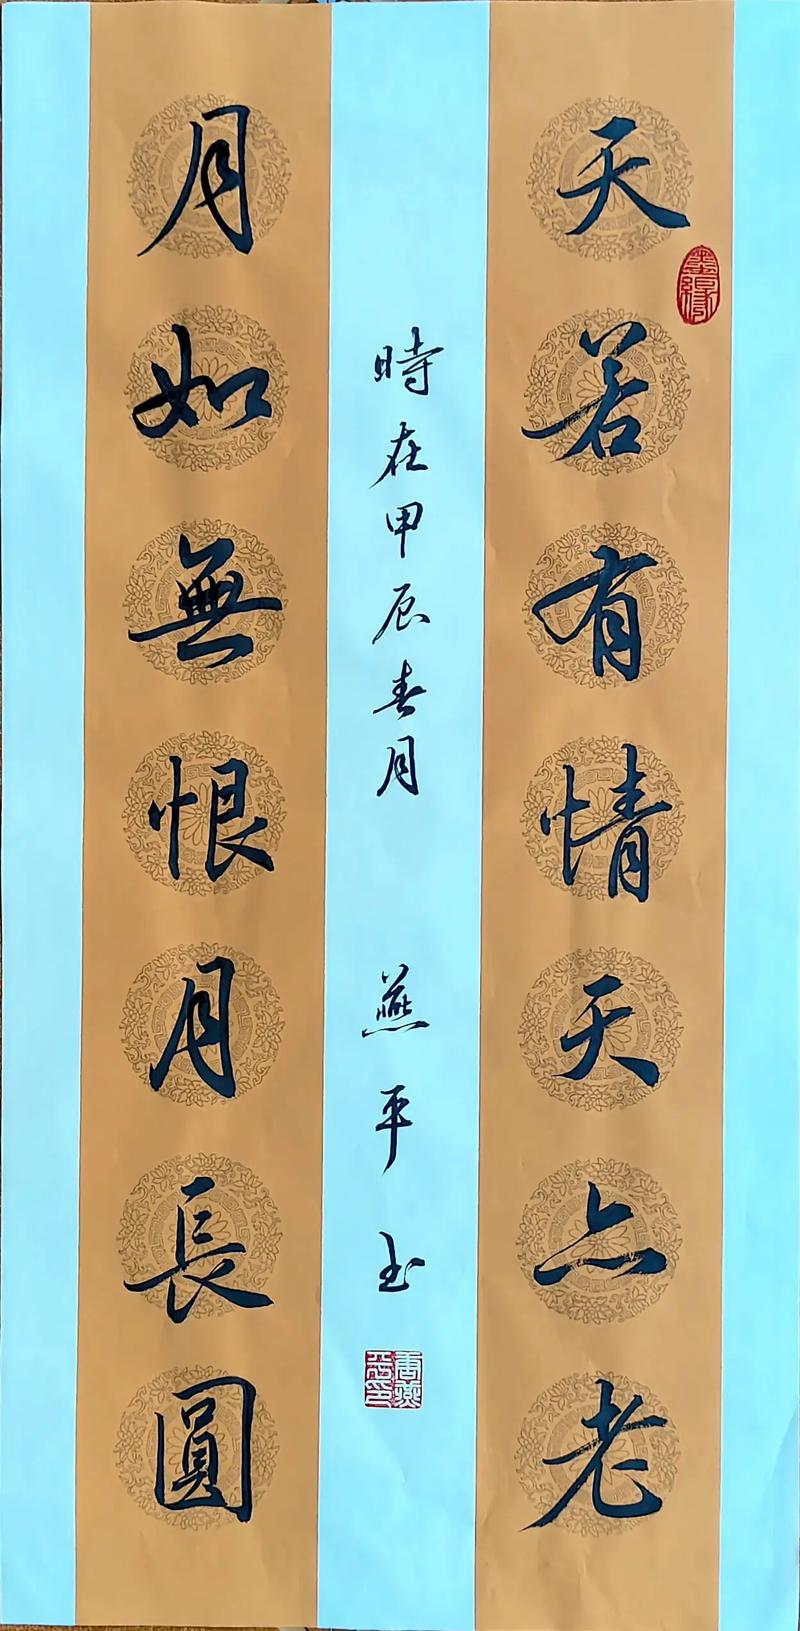 天若有情天亦老
月如無恨月長圓
時在甲辰春月 燕平书
墨緣